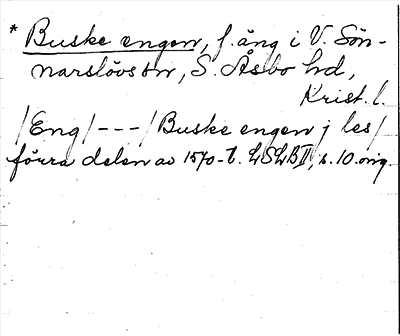 * Buske engen, f. äng i V. Sön-
narslövs sn, S. Åsbo hd,
Krist. l.
/Eng/---/Buske engen j les/
förra delen av 1570-t. LSLB II, s. 10. orig.